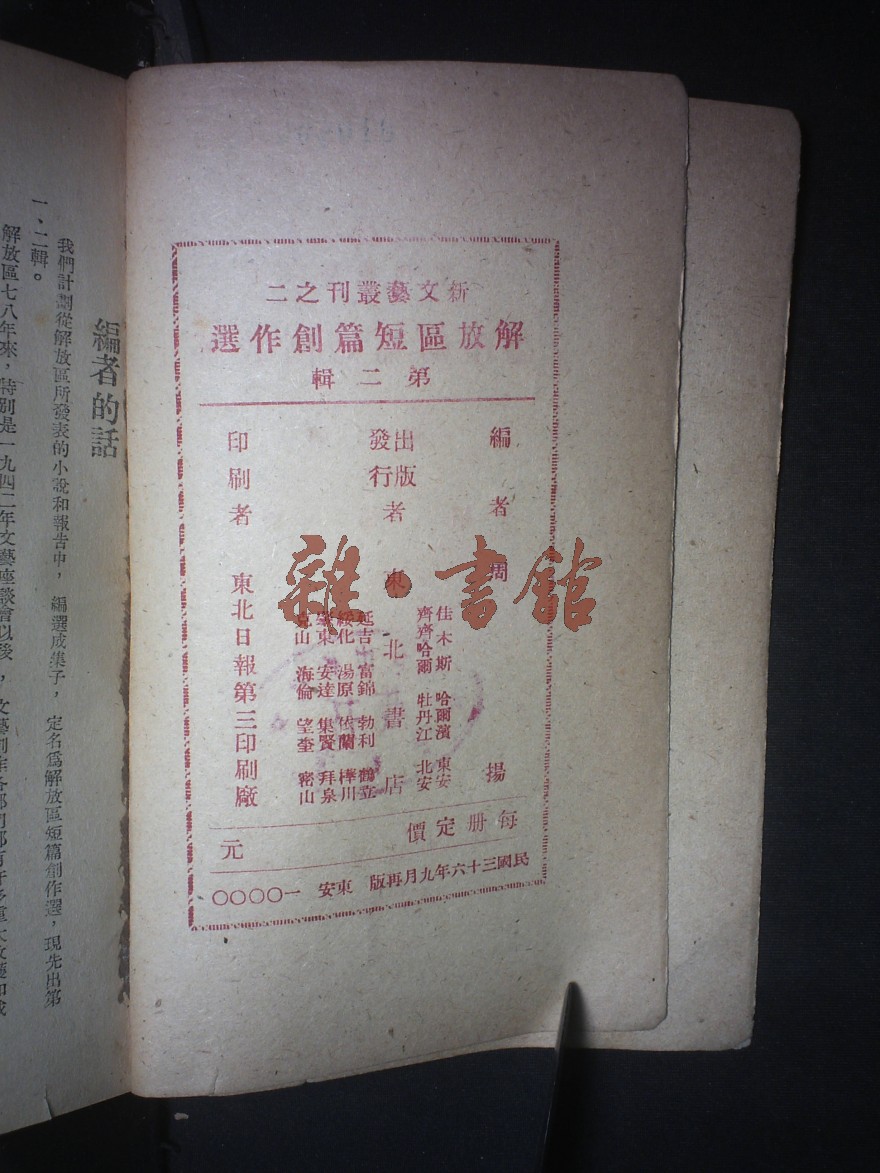 新文藝叢刊之二
解放區短篇創作選
第二輯
編者 周揚
出版
發行
者 東北書店
佳木斯 哈爾濱 東安
齊齊哈爾 牡丹江 北安
延吉 富錦 勃利 鶴立
綏化 湯原 依蘭 樺川
肇東 安達 集賢 拜泉
克山 海倫 望奎 密山
印刷者 東北日報第三印刷廠
每册定價 元
民國三十六年九月再版 東安 一〇〇〇〇
雜·書館
編者的話
我們計劃從解放區所發表的小說和報告中，編選成集子，定名爲解放區短篇創作選，現先出第
一、二輯。
解放區七八年來，特別是一九四二年文藝座談會以後，文藝創作各部門都有許多重大改變和成